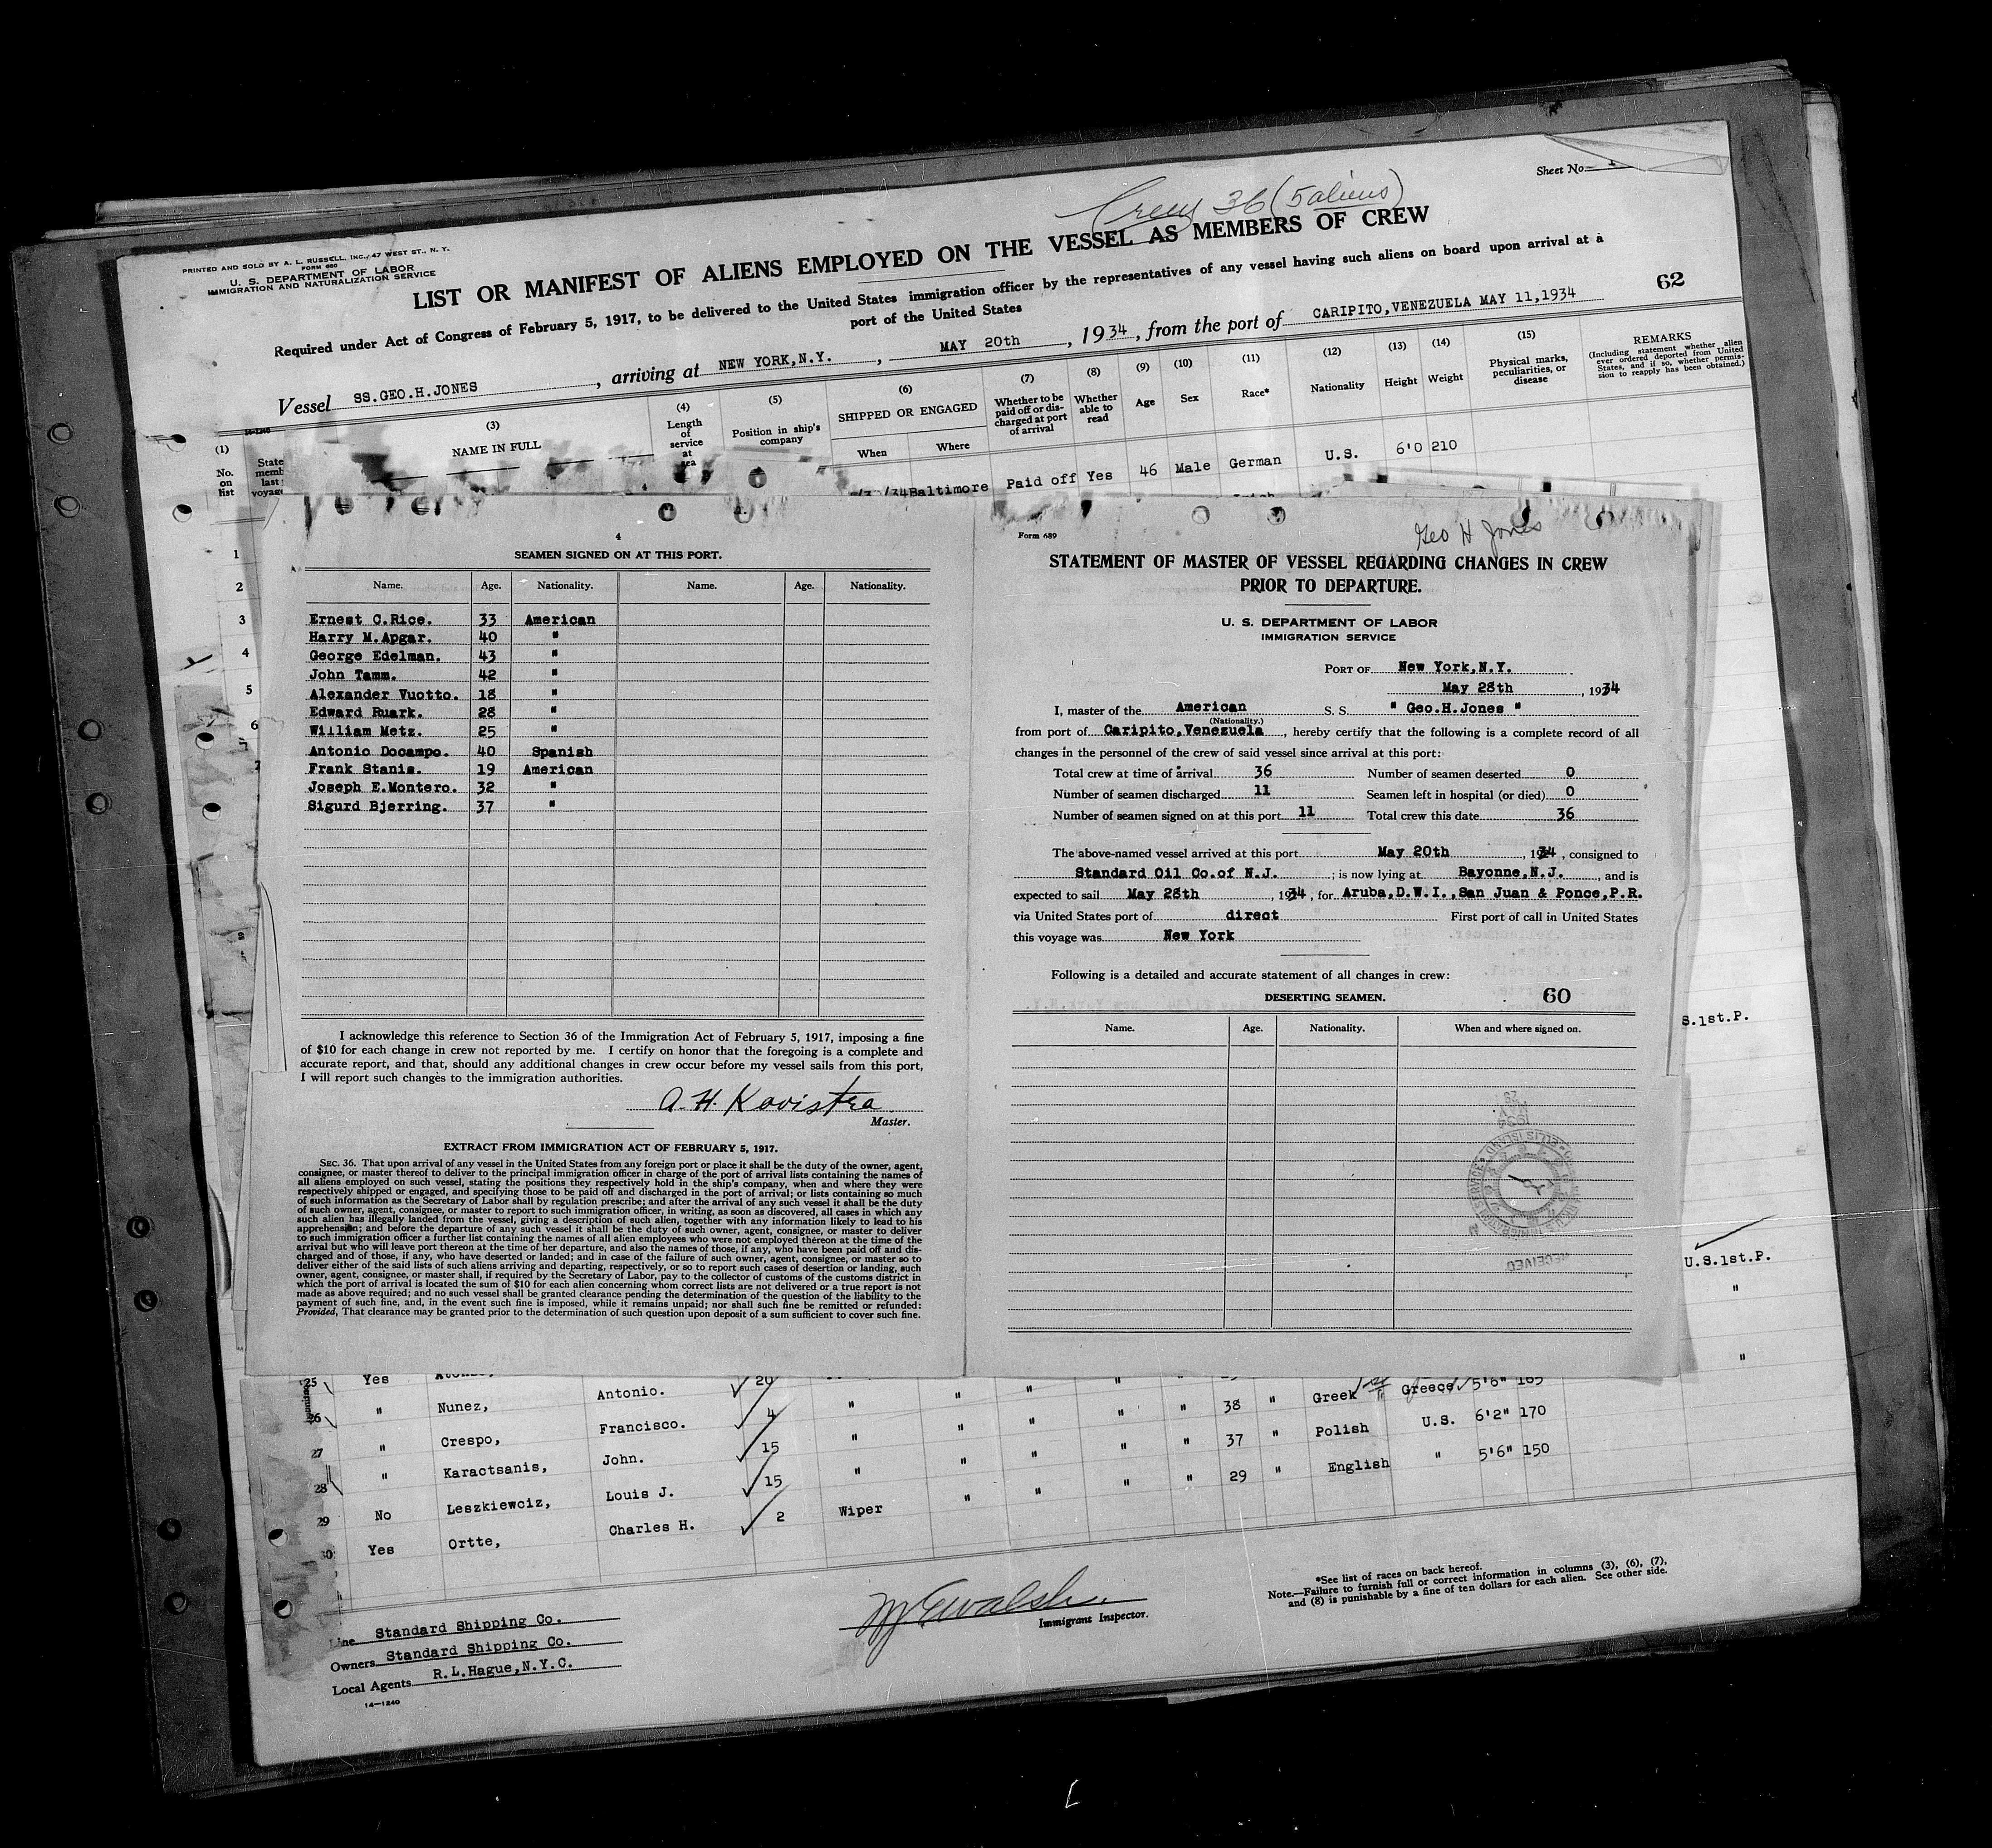 Sheet No. 1
Crew 36 (5 aliens)
PRINTED AND SOLD BY A. L. RUSSELL, INC., 47 WEST ST., N. Y.
FORM 680
U. S. DEPARTMENT OF LABOR
IMMIGRATION AND NATURALIZATION SERVICE
LIST OR MANIFEST OF ALIENS EMPLOYED ON THE VESSEL AS MEMBERS OF CREW
Required under Act of Congress of February 5, 1917, to be delivered to the United States immigration officer by the representatives of any vessel having such aliens on board upon arrival at a
port of the United States
62
Vessel SS.GEO.H.JONES, arriving at NEW YORK,N.Y., MAY 20th, 1934, from the port of CARIPITO,VENEZUELA MAY 11,1934
(1) (3) (4) (5) (6) (7) (8) (9) (10) (11) (12) (13) (14) (15)
14-1240
No. on list
State
memb
last
voyage
NAME IN FULL
Length of service at sea
Position in ship's company
SHIPPED OR ENGAGED
When Where
Whether to be paid off or discharged at port of arrival
Whether able to read
Age
Sex
Race*
Nationality
Height
Weight
Physical marks, peculiarities, or disease
REMARKS
(Including statement whether alien ever ordered deported from United States, and if so, whether permission to reapply has been obtained.)
/34 Baltimore Paid off Yes 46 Male German U.S. 6'0 210
1
2
3
4
5
6
7
4
SEAMEN SIGNED ON AT THIS PORT.
Name. Age. Nationality. Name. Age. Nationality.
Ernest C.Rice. 33 American
Harry M.Apgar. 40 "
George Edelman. 43 "
John Tamm. 42 "
Alexander Vuotto. 18 "
Edward Ruark. 28 "
William Metz. 25 "
Antonio Docampo. 40 Spanish
Frank Stanis. 19 American
Joseph E.Montero. 32 "
Sigurd Bjerring. 37 "
I acknowledge this reference to Section 36 of the Immigration Act of February 5, 1917, imposing a fine
of $10 for each change in crew not reported by me. I certify on honor that the foregoing is a complete and
accurate report, and that, should any additional changes in crew occur before my vessel sails from this port,
I will report such changes to the immigration authorities.
A. H. Kooistra
Master.
EXTRACT FROM IMMIGRATION ACT OF FEBRUARY 5, 1917.
SEC. 36. That upon arrival of any vessel in the United States from any foreign port or place it shall be the duty of the owner, agent,
consignee, or master thereof to deliver to the principal immigration officer in charge of the port of arrival lists containing the names of
all aliens employed on such vessel, stating the positions they respectively hold in the ship's company, when and where they were
respectively shipped or engaged, and specifying those to be paid off and discharged in the port of arrival; or lists containing so much
of such information as the Secretary of Labor shall by regulation prescribe; and after the arrival of any such vessel it shall be the duty
of such owner, agent, consignee, or master to report to such immigration officer, in writing, as soon as discovered, all cases in which any
such alien has illegally landed from the vessel, giving a description of such alien, together with any information likely to lead to his
apprehension; and before the departure of any such vessel it shall be the duty of such owner, agent, consignee, or master to deliver
to such immigration officer a further list containing the names of all alien employees who were not employed thereon at the time of the
arrival but who will leave port thereon at the time of her departure, and also the names of those, if any, who have been paid off and dis-
charged and of those, if any, who have deserted or landed; and in case of the failure of such owner, agent, consignee, or master so to
deliver either of the said lists of such aliens arriving and departing, respectively, or so to report such cases of desertion or landing, such
owner, agent, consignee, or master shall, if required by the Secretary of Labor, pay to the collector of customs of the customs district in
which the port of arrival is located the sum of $10 for each alien concerning whom correct lists are not delivered or a true report is not
made as above required; and no such vessel shall be granted clearance pending the determination of the question of the liability to the
payment of such fine, and, in the event such fine is imposed, while it remains unpaid; nor shall such fine be remitted or refunded:
Provided, That clearance may be granted prior to the determination of such question upon deposit of a sum sufficient to cover such fine.
Form 689
Geo H Jones
STATEMENT OF MASTER OF VESSEL REGARDING CHANGES IN CREW
PRIOR TO DEPARTURE.
U. S. DEPARTMENT OF LABOR
IMMIGRATION SERVICE
PORT OF New York,N.Y.
May 28th, 1934
I, master of the American S. S. " Geo.H.Jones "
(Nationality.)
from port of Caripito,Venezuela, hereby certify that the following is a complete record of all
changes in the personnel of the crew of said vessel since arrival at this port:
Total crew at time of arrival 36 Number of seamen deserted 0
Number of seamen discharged 11 Seamen left in hospital (or died) 0
Number of seamen signed on at this port 11 Total crew this date 36
The above-named vessel arrived at this port May 20th, 1934, consigned to
Standard Oil Co.of N.J.; is now lying at Bayonne,N.J., and is
expected to sail May 28th, 1934, for Aruba,D.W.I.,San Juan & Ponce,P.R.
via United States port of direct First port of call in United States
this voyage was New York
Following is a detailed and accurate statement of all changes in crew:
DESERTING SEAMEN. 60
Name. Age. Nationality. When and where signed on.
RECEIVED
S.1st.P.
U.S.1st.P.
"
"
25 Yes
26 " Nunez, Antonio. 20
27 " Crespo, Francisco. 4
28 " Karactsanis, John. 15 " " " " " 38 " Greek Greece 5'6" 165
29 No Leszkiewciz, Louis J. 15 " " " " " 37 " Polish U.S. 6'2" 170
30 Yes Ortte, Charles H. 2 Wiper " " " " 29 " English " 5'6" 150
Line Standard Shipping Co.
Owners Standard Shipping Co.
Local Agents R.L.Hague,N.Y.C.
14-1240
Immigrant Inspector.
*See list of races on back hereof.
Note.—Failure to furnish full or correct information in columns (3), (6), (7),
and (8) is punishable by a fine of ten dollars for each alien. See other side.